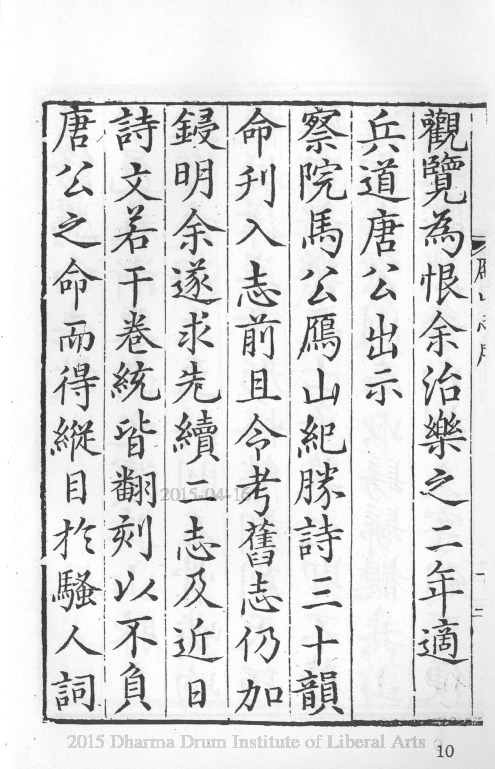 觀覽為恨余治樂之二年適
兵道唐公出示
察院馬公鴈山紀勝詩三十韻
命刋入志前且令考舊志仍加
鋟明余遂求先續二志及近日
詩文若干卷統皆翻刻以不負
唐公之命而得縱目於騷人詞
2015-04-16
2015 Dharma Drum Institute of Liberal Arts
10